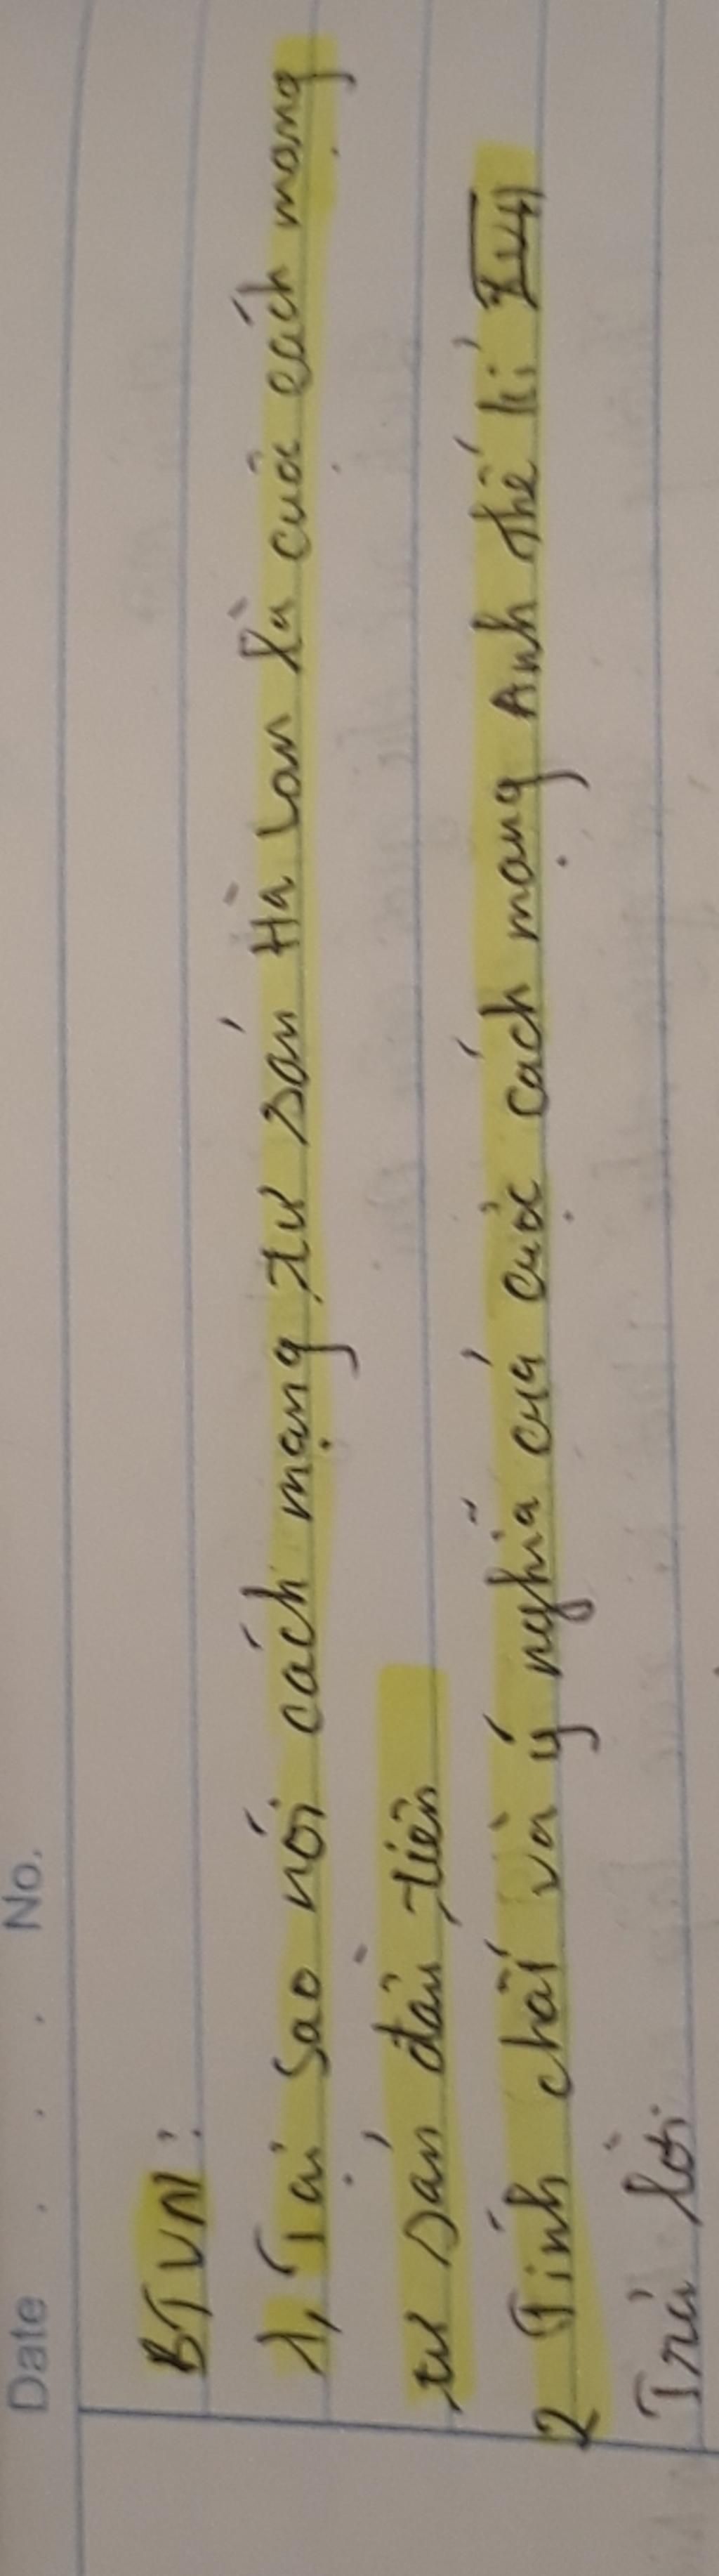 Date . . . No.
BTVN:
1, Tại sao nói cách mạng tư sản Hà Lan là cuộc cách mạng
tư sản đầu tiên
2 Tính chất và ý nghĩa của cuộc cách mạng Anh thế kỉ XVII
Trả lời